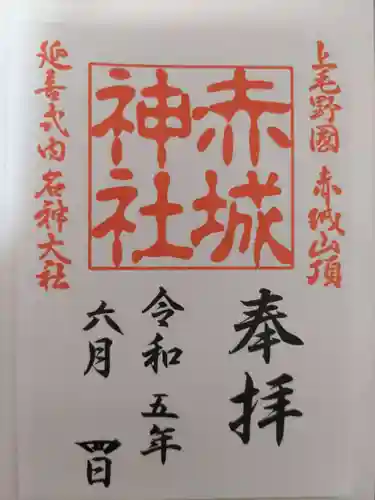 上毛野國 赤城山頂
赤城
神社
延喜式内 名神大社
奉拝
令和五年
六月 四日